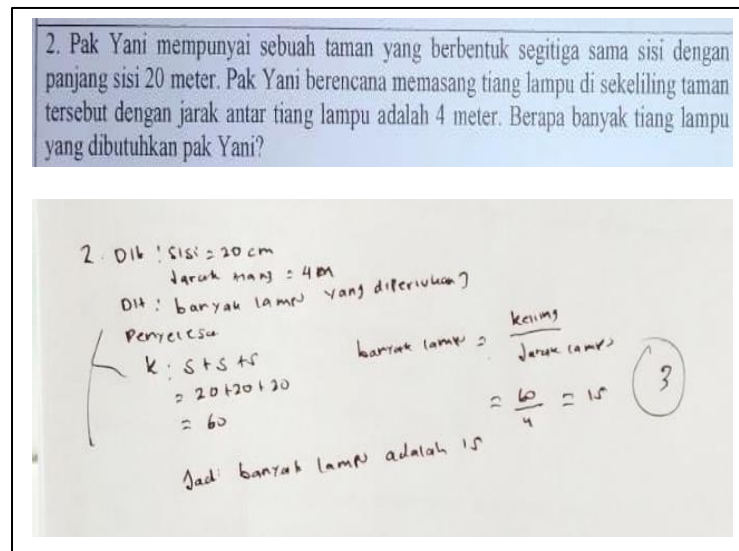 2. Pak Yani mempunyai sebuah taman yang berbentuk segitiga sama sisi dengan
panjang sisi 20 meter. Pak Yani berencana memasang tiang lampu di sekeliling taman
tersebut dengan jarak antar tiang lampu adalah 4 meter. Berapa banyak tiang lampu
yang dibutuhkan pak Yani?
2. Dik : Sisi = 20 cm
Jarak tiang = 4 m
Dit : banyak lampu yang diperlukan ?
Penyelesa
K : S + S + S
= 20 + 20 + 20
= 60
banyak lampu = keliling / Jarak lampu
= 60 / 4 = 15
3
Jadi banyak lampu adalah 15